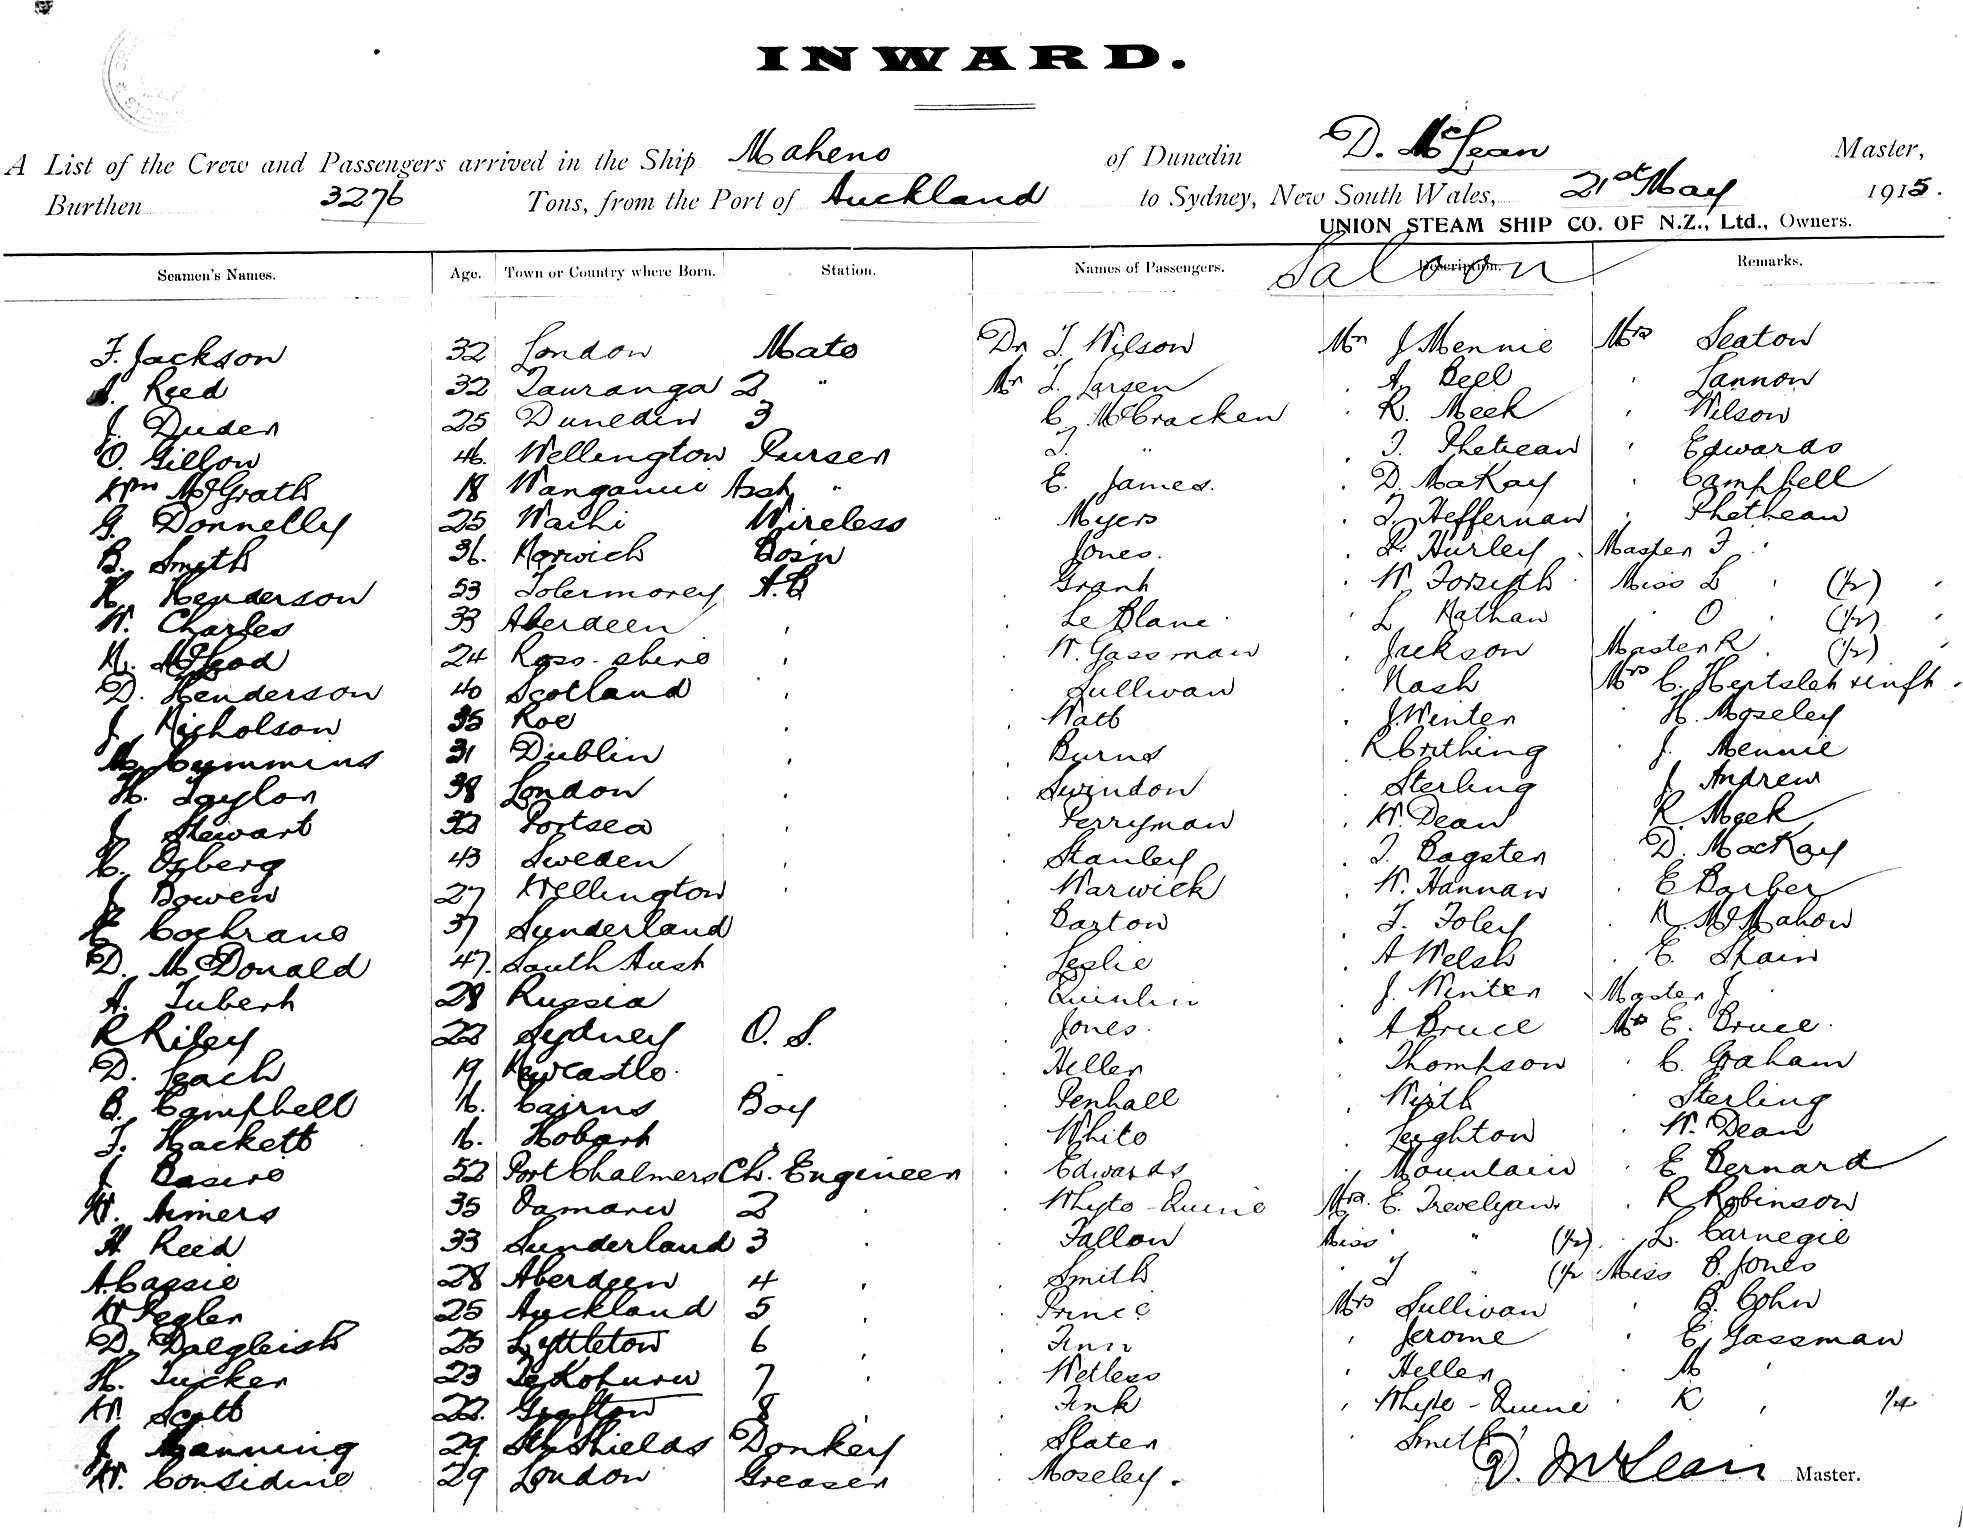 INWARD.
A List of the Crew and Passengers arrived in the Ship Maheno of Dunedin D. McLean Master,
Burthen 3276 Tons, from the Port of Auckland to Sydney, New South Wales, 21st May 1915.
UNION STEAM SHIP CO. OF N.Z., Ltd., Owners.
Seamen's Names. Age. Town or Country where Born. Station. Names of Passengers. Description. Remarks.
Saloon
F. Jackson 32 London Mate Dr T. Wilson Mr J Mennie Mrs Seaton
A. Reed 32 Tauranga 2 " Mr T. Larsen . A. Bell . Lannon
J. Duder 25 Dunedin 3 C. McCracken . R. Meek . Wilson
O. Gillon 46. Wellington Purser T. " . T. Phethean . Edwards
Wm McGrath 18 Wanganui Asst " E. James. . D. MaKay . Campbell
G. Donnelly 25 Waihi Wireless . Myers . T. Heffernan . Phethean
B. Smith 36. Norwich Bos'n Jones. . P. Hurley . Master F. "
H. Henderson 53 Tobermorey A.B Grant . W. Forsyth Miss L " (1/2)
W. Charles 33 Aberdeen . Le Blanc . L Nathan . O " (1/2)
N. McLeod 24 Ross-shire . W. Gassman . Jackson Master R . (1/2)
D. Henderson 40 Scotland . Sullivan . Nash Mrs C. Hertslet & inft.
J. Nicholson 35 Roe . Watt . J. Winter . H. Moseley
M. Cummins 31 Dublin . Burns R Corthing . J. Mennie
H. Taylor 38 London . Swindon . Sterling . J Andrew
J. Stewart Portsea . Perryman . W. Dean . R. Meek
H. Osberg 43 Sweden . Stanley . T. Bagster . D. MacKay
J. Bowen 27 Wellington . Warwick . W. Hannan . E Barber
E Cochrane 37 Sunderland . Barton . T. Foley . N. McMahon
D. McDonald 47. South Aust . Leslie . A Welsh . E. Spain
A. Tubert 28 Russia . Quinlin . J. Winter . Master J. .
R Riley 22 Sydney O. S. . Jones. . A Bruce Mrs E. Bruce.
D. Leach 19 Newcastle. . Heller . Thompson . C. Graham
B. Campbell 16. Cairns Boy . Penhall . Wirth . Sterling
F. Hackett 16. Hobart . . White . Leighton . W. Dean
J Basire 52 Port Chalmers Ch. Engineer . Edwards . Mountain . E Bernard
W. Aimers 35 Oamaru 2 . . Whyte-Quine Mrs. E. Trevelyan. . R Robinson
H Reed 33 Sunderland 3 . . Fallon Miss " (1/2). . L. Carnegie
A Cassie 28 Aberdeen 4 . . Smith . J " (1/2 Miss B. Jones
W Pegler 25 Auckland 5 . . Prince Mrs Sullivan . B. Cohn
D. Dalgleish 25 Lyttleton 6 . . Finn . Jerome . E. Gassman
H. Tucker 23 Te Kohuru 7 . . Wetless . Heller . M "
W. Scott 22. Grafton 8 . . Fink . Whyte-Quine . K " 1/4
J Manning 29 Sth Shields Donkey . Slater . Smith
W. Considine 29 London Greaser . Moseley.
D. McLean Master.